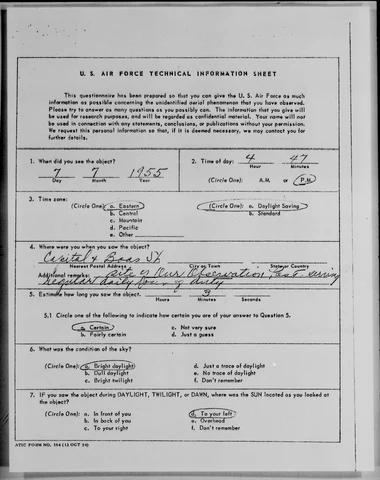 U. S. AIR FORCE TECHNICAL INFORMATION SHEET
This questionnaire has been prepared so that you can give the U. S. Air Force as much
information as possible concerning the unidentified aerial phenomenon that you have observed.
Please try to answer as many questions as you possibly can. The information that you give will
be used for research purposes, and will be regarded as confidential material. Your name will not
be used in connection with any statements, conclusions, or publications without your permission.
We request this personal information so that, if it is deemed necessary, we may contact you for
further details.
1. When did you see the object?
7 7 1955
Day Month Year
2. Time of day: 4 47
Hour Minutes
(Circle One): A.M. or P.M.
3. Time zone:
(Circle One): a. Eastern
b. Central
c. Mountain
d. Pacific
e. Other
(Circle One): a. Daylight Saving
b. Standard
4. Where were you when you saw the object?
Capital & Boas St
Nearest Postal Address City or Town State or Country
Additional remarks: Site of Our Observation Post during
regular daily tour of duty
5. Estimate how long you saw the object. 3
Hours Minutes Seconds
5.1 Circle one of the following to indicate how certain you are of your answer to Question 5.
a. Certain c. Not very sure
b. Fairly certain d. Just a guess
6. What was the condition of the sky?
(Circle One): a. Bright daylight d. Just a trace of daylight
b. Dull daylight e. No trace of daylight
c. Bright twilight f. Don't remember
7. IF you saw the object during DAYLIGHT, TWILIGHT, or DAWN, where was the SUN located as you looked at
the object?
(Circle One): a. In front of you d. To your left
b. In back of you e. Overhead
c. To your right f. Don't remember
ATIC FORM NO. 164 (13 OCT 54)